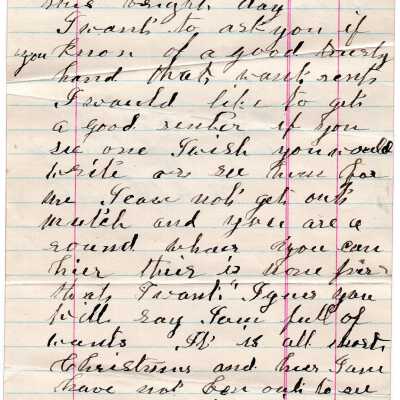 this bright day
I want to ask you if
you know of a good trusty
hand that want rent
I would like to get
a good renter if you
see one I wish you would
write or see them for
me I can not get out
mutch and you are a
round whear you can
hier thier is none frier
that I want" I gues you
will say I am full of
wants It is all most
Christmus and hier I am
have not ben out to see